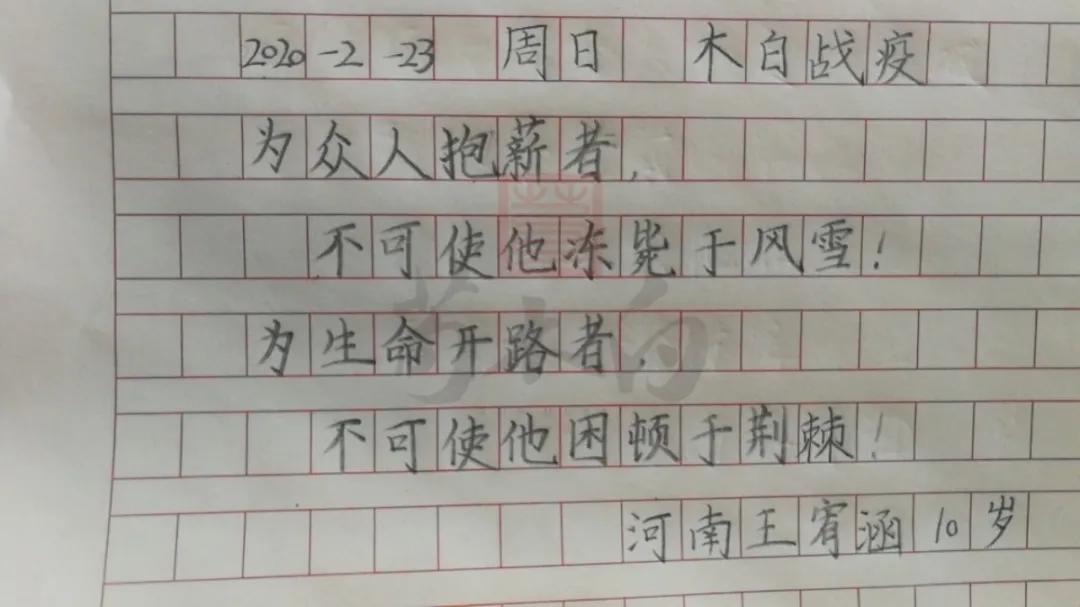 2020-2-23 周日 木白战疫
为众人抱薪者,
不可使他冻毙于风雪!
为生命开路者,
不可使他困顿于荆棘!
河南王宥涵10岁